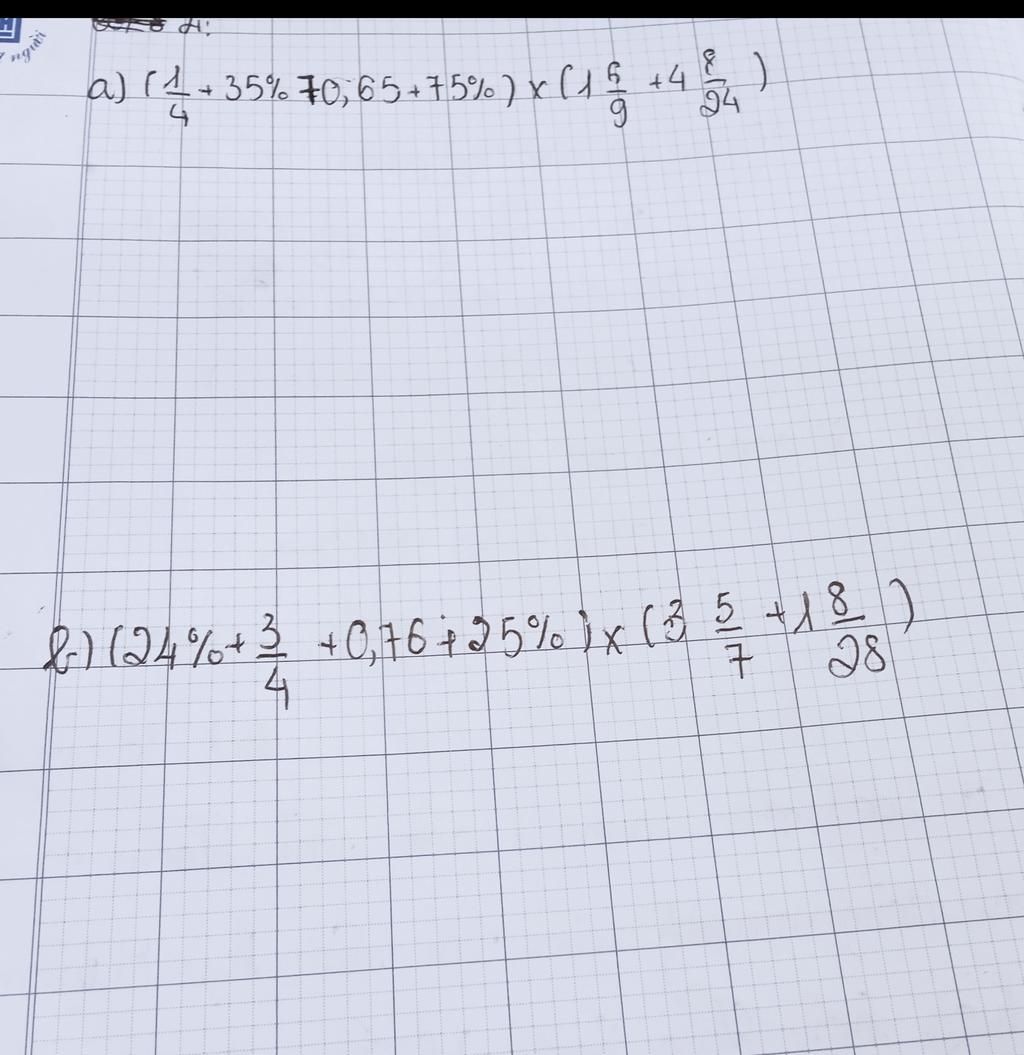 người
4:
a) (1/4 + 35% + 0,65 + 75%) x (1 6/9 + 4 8/24)
b) (24% + 3/4 + 0,76 + 25%) x (3 5/7 + 1 8/28)